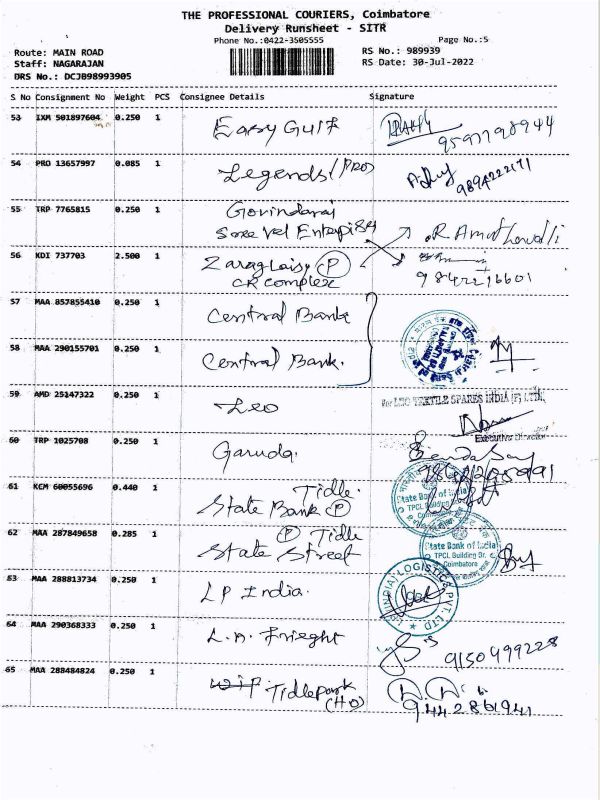 THE PROFESSIONAL COURIERS, Coimbatore
Delivery Runsheet - SITR
Phone No.:0422-3505555 Page No.:5
Route: MAIN ROAD RS No.: 989939
Staff: NAGARAJAN RS Date: 30-Jul-2022
DRS No.: DCJB98993905
S No Consignment No Weight PCS Consignee Details Signature
53 IXM 501897604 0.250 1 Easy Gulf
54 PRO 13657997 0.085 1 Legends (PRO) 9894222171
55 TRP 7765815 0.250 1 Govindaraj
Sree Vel
56 KDI 737703 2.500 1 P
CR complex
57 MAA 857855410 0.250 1 Central Bank
58 MAA 290155701 0.250 1 Central Bank.
59 AMD 25147322 0.250 1 Leo For LEO TEXTILE SPARES INDIA (P) LTD.
Executive Director
60 TRP 1025708 0.250 1 Garuda.
61 KCM 60055696 0.440 1 Tidle.
State Bank P State Bank of India
TPCL Building
62 MAA 287849658 0.285 1 P Tidle
State Street State Bank of India
TPCL Building Br.
Coimbatore
63 MAA 288813734 0.250 1 LP India. INDIA LOGISTICS PVT. LTD
64 MAA 290368333 0.250 1 L.n. Frieght 9150499228
65 MAA 288484824 0.250 1 Tidlepark
(HO) 9442861941